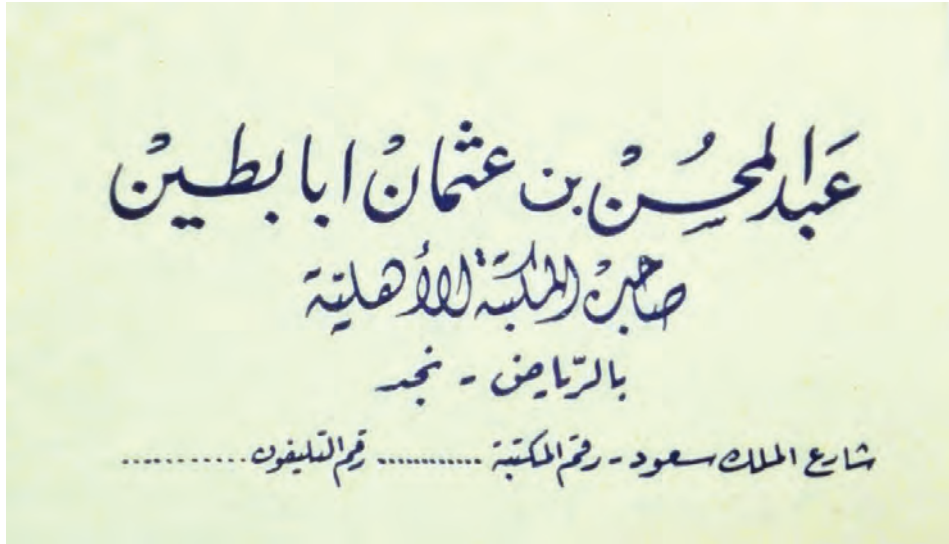 عبد المحسن بن عثمان ابا بطين
صاحب المكتبة الأهلية
بالرياض - نجد
شارع الملك سعود - رقم المكتبة ............ رقم التليفون ............